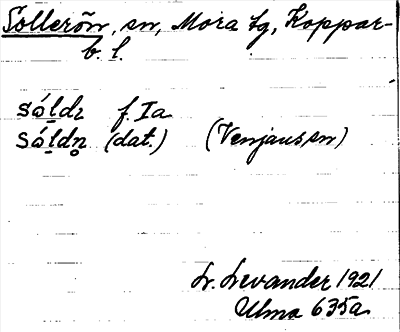 Sollerön, sn, Mora tg, Koppar-
b. l.
sóldɿ f. Ia
sóldn̥ (dat.) (Venjans sn)
L. Levander 1921
Ulma 635a